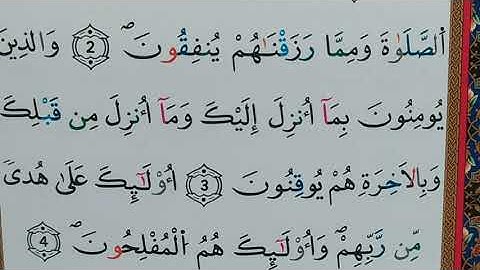 اَ۬لصَّلَوٰةَ وَمِمَّا رَزَقْنَٰهُمْ يُنفِقُونَۖ ۝2 وَالذِينَ
يُومِنُونَ بِمَآ أُنزِلَ إِلَيْكَ وَمَآ أُنزِلَ مِن قَبْلِكَ
وَبِالَاخِرَةِ هُمْ يُوقِنُونَۖ ۝3 أُوْلَٰٓئِكَ عَلَىٰ هُدىٗ
مِّن رَّبِّهِمْۖ وَأُوْلَٰٓئِكَ هُمُ اُ۬لْمُفْلِحُونَۖ ۝4